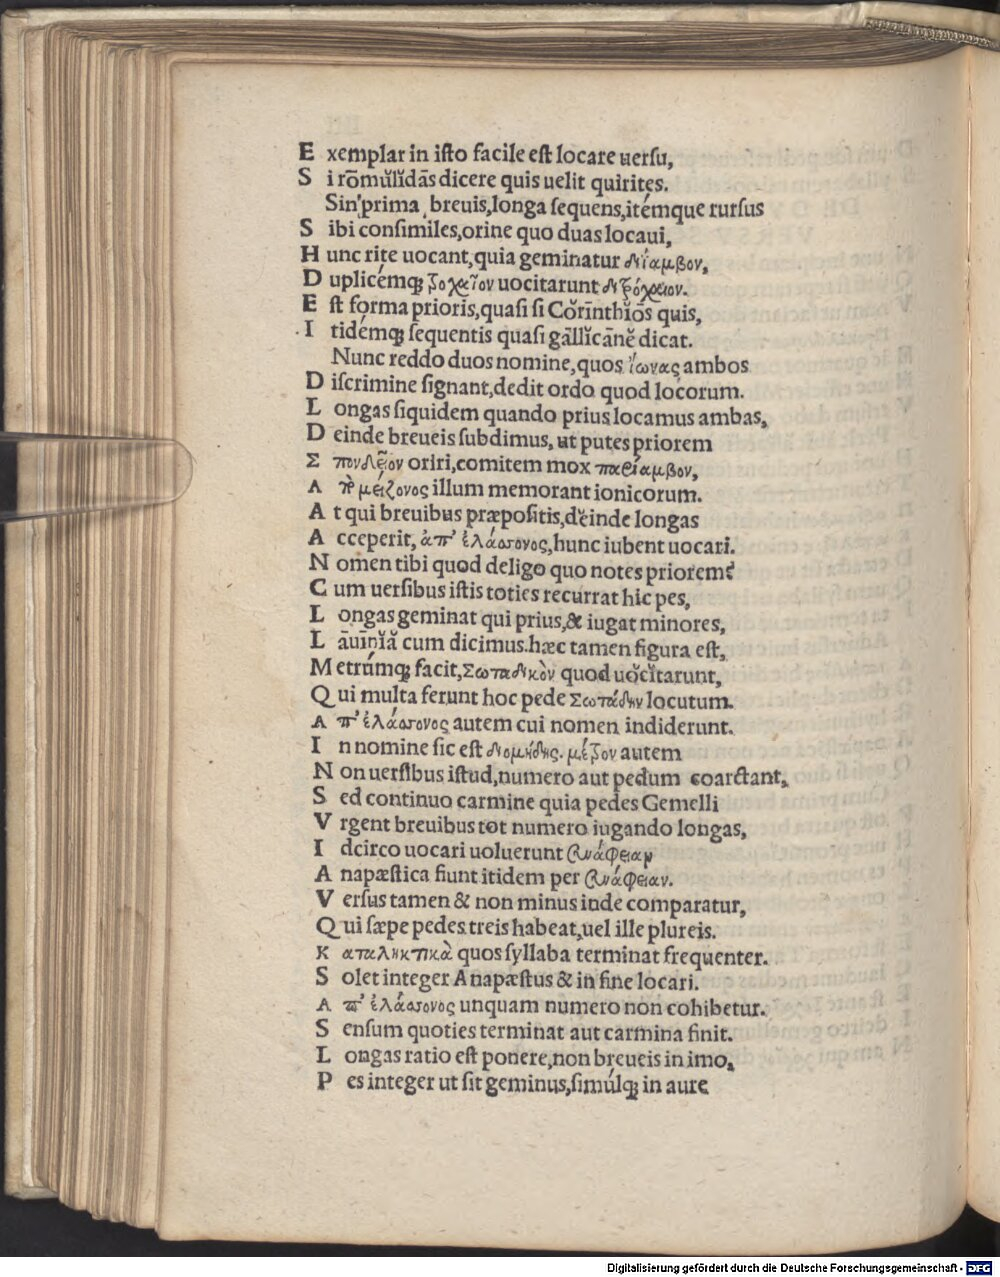 E xemplar in iſto facile eſt locare uerſu,
S i rōmŭlĭdās dicere quis uelit quirites.
Sin prima breuis, longa ſequens, itémque rurſus
S ibi conſimiles, orine quo duas locaui,
H unc rite uocant, quia geminatur διΐαμβον,
D uplicémq; τροχαῖον uocitarunt διτρόχαιον.
E ſt forma prioris, quaſi ſi Cŏrīnthĭōs quis,
I tidémq; ſequentis quaſi gāllĭcānĕ dicat.
Nunc reddo duos nomine, quos ἴωνας ambos
D iſcrimine ſignant, dedit ordo quod locorum.
L ongas ſiquidem quando prius locamus ambas,
D einde breueis ſubdimus, ut putes priorem
Σ πονδεῖον oriri, comitem mox παρίαμβον,
Α π̓ μείζονος illum memorant ionicorum.
A t qui breuibus præpoſitis, deinde longas
A cceperit, ἀπ' ἐλάσσονος, hunc iubent uocari.
N omen tibi quod deligo quo notes priorem?
C um uerſibus iſtis toties recurrat hic pes,
L ongas geminat qui prius, & iugat minores,
L āuīnĭă cum dicimus. hæc tamen figura eſt,
M etrúmq; facit, Σωταδικὸν quod uŏcĭtarunt,
Q ui multa ferunt hoc pede Σωτάδην locutum.
Α π' ἐλάσσονος autem cui nomen indiderunt.
I n nomine ſic eſt διομήδης. μέτρον autem
N on uerſibus iſtud, numero aut pedum coarctant,
S ed continuo carmine quia pedes Gemelli
V rgent breuibus tot numero iugando longas,
I dcirco uocari uoluerunt συνάφειαν
A napæſtica fiunt itidem per συνάφειαν.
V erſus tamen & non minus inde comparatur,
Q ui ſæpe pedes treis habeat, uel ille plureis.
Κ αταληκτικὰ quos ſyllaba terminat frequenter.
S olet integer Anapæſtus & in fine locari.
Α π' ἐλάσσονος unquam numero non cohibetur.
S enſum quoties terminat aut carmina finit.
L ongas ratio eſt ponere, non breueis in imo,
P es integer ut ſit geminus, ſimúlq; in aure
Digitalisierung gefördert durch die Deutsche Forschungsgemeinschaft - DFG